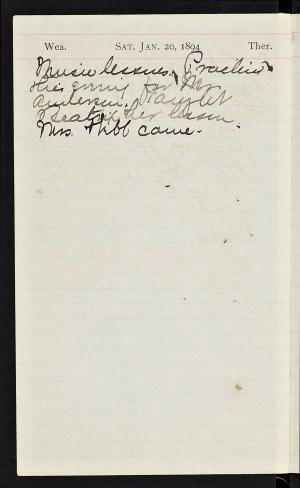 Wea. SAT. JAN. 20, 1894 Ther.
Music lessons. Practised
this evening for Mr
Anderson. Taught
Beatrix her lesson.
Mrs. Tibb came.